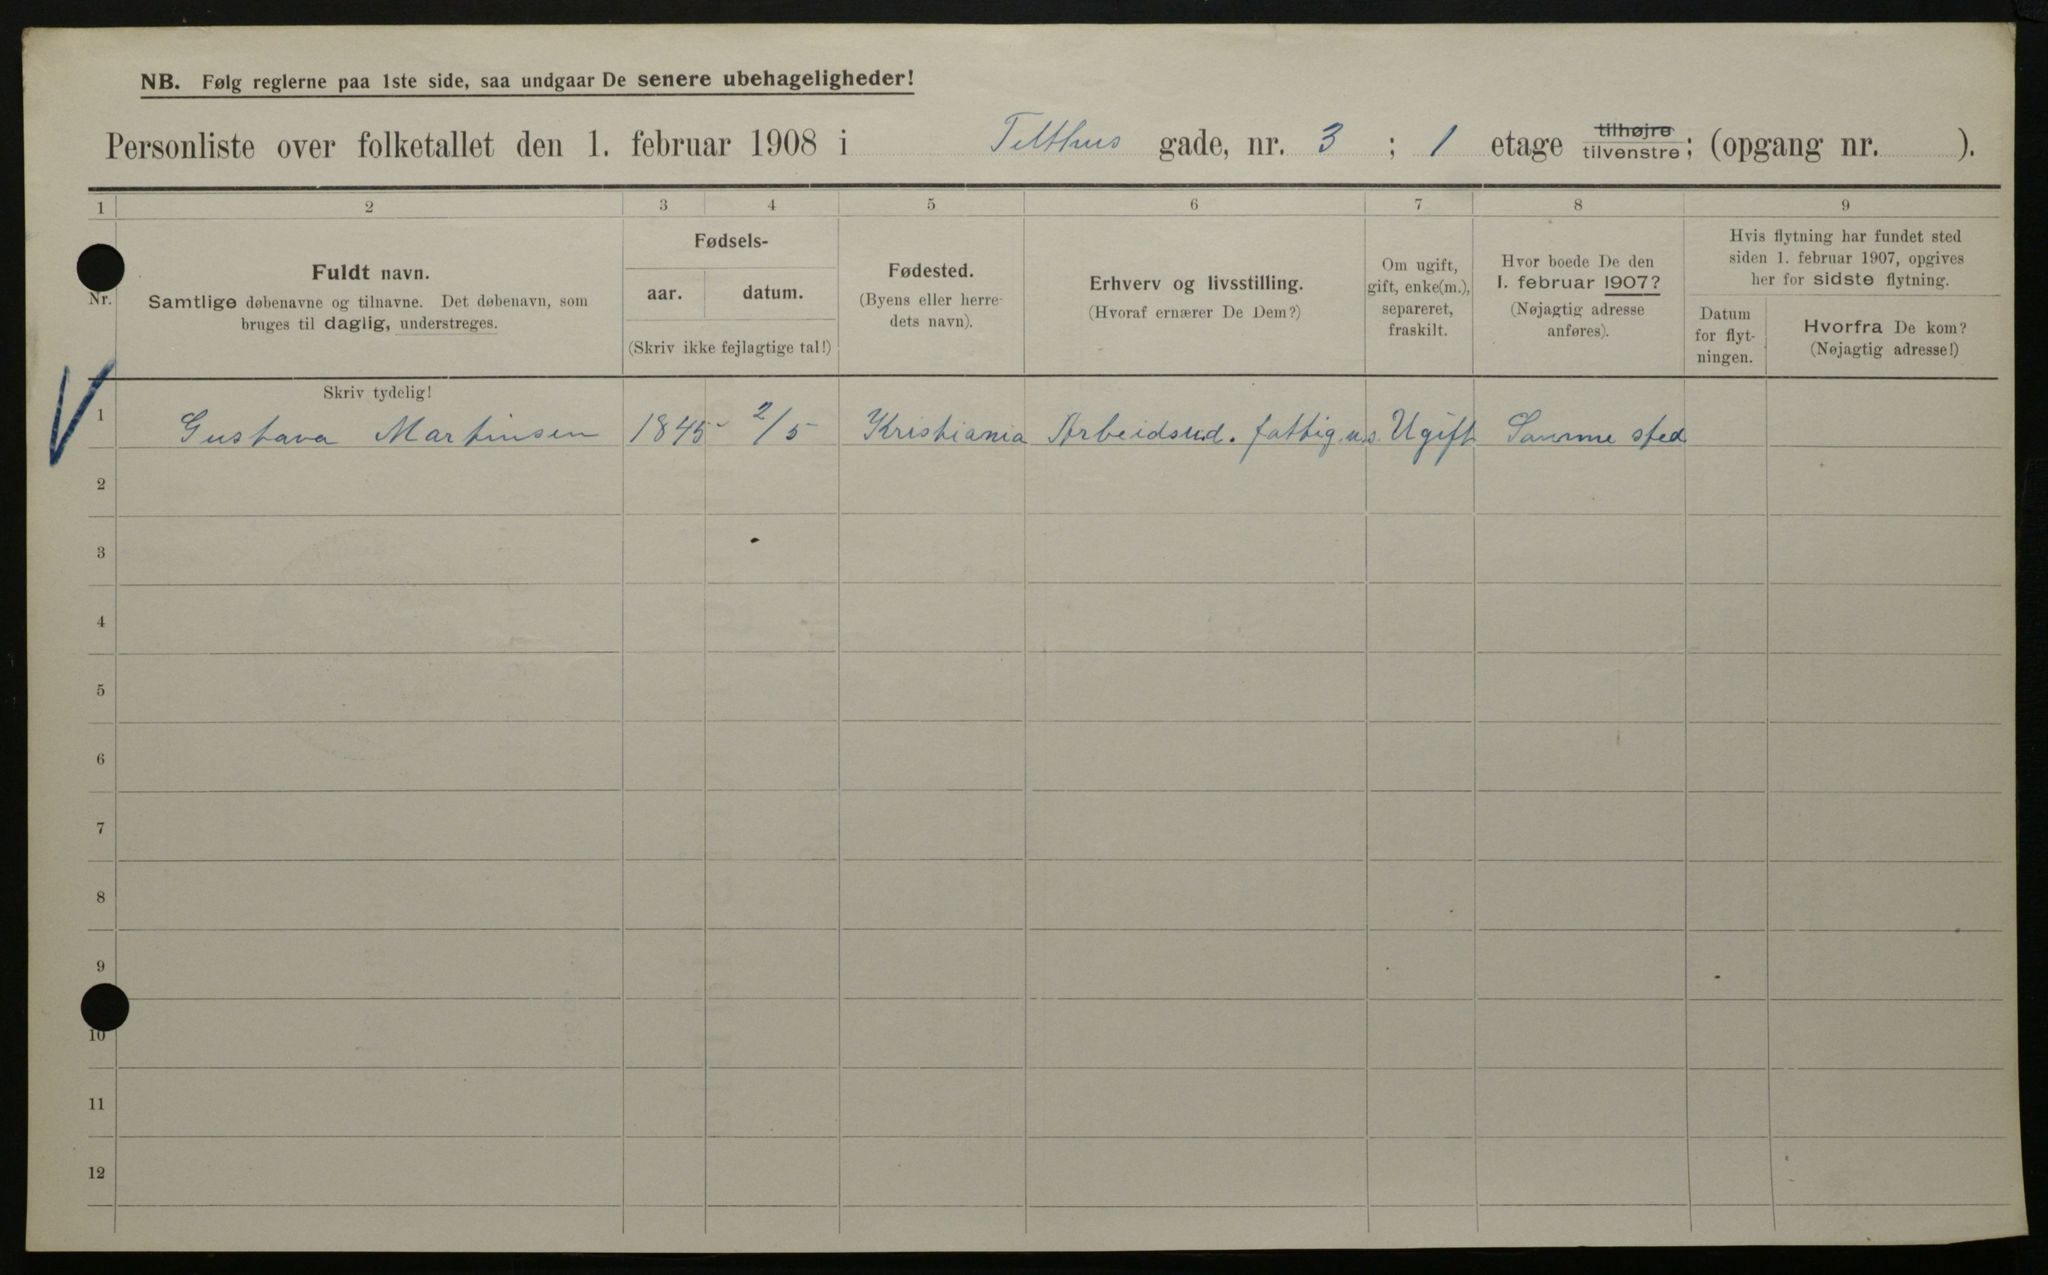 NB. Følg reglerne paa 1ste side, saa undgaar De senere ubehageligheder!
Personliste over folketallet den 1. februar 1908 i Telthus gade, nr. 3; 1 etage tilhøjre tilvenstre; (opgang nr. ).
1 2 3 4 5 6 7 8 9
Nr.
Fuldt navn.
Samtlige døbenavne og tilnavne. Det døbenavn, som
bruges til daglig, understreges.
Fødsels-
aar. datum.
(Skriv ikke fejlagtige tal!)
Fødested.
(Byens eller herre-
dets navn).
Erhverv og livsstilling.
(Hvoraf ernærer De Dem?)
Om ugift,
gift, enke(m.),
separeret,
fraskilt.
Hvor boede De den
1. februar 1907?
(Nøjagtig adresse
anføres).
Hvis flytning har fundet sted
siden 1. februar 1907, opgives
her for sidste flytning.
Datum
for flyt-
ningen.
Hvorfra De kom?
(Nøjagtig adresse!)
Skriv tydelig!
1 Gustava Martinsen 1845 2/5 Kristiania Arbeidsud. fattig.u.s. Ugift Samme sted
2
3
4
5
6
7
8
9
10
11
12